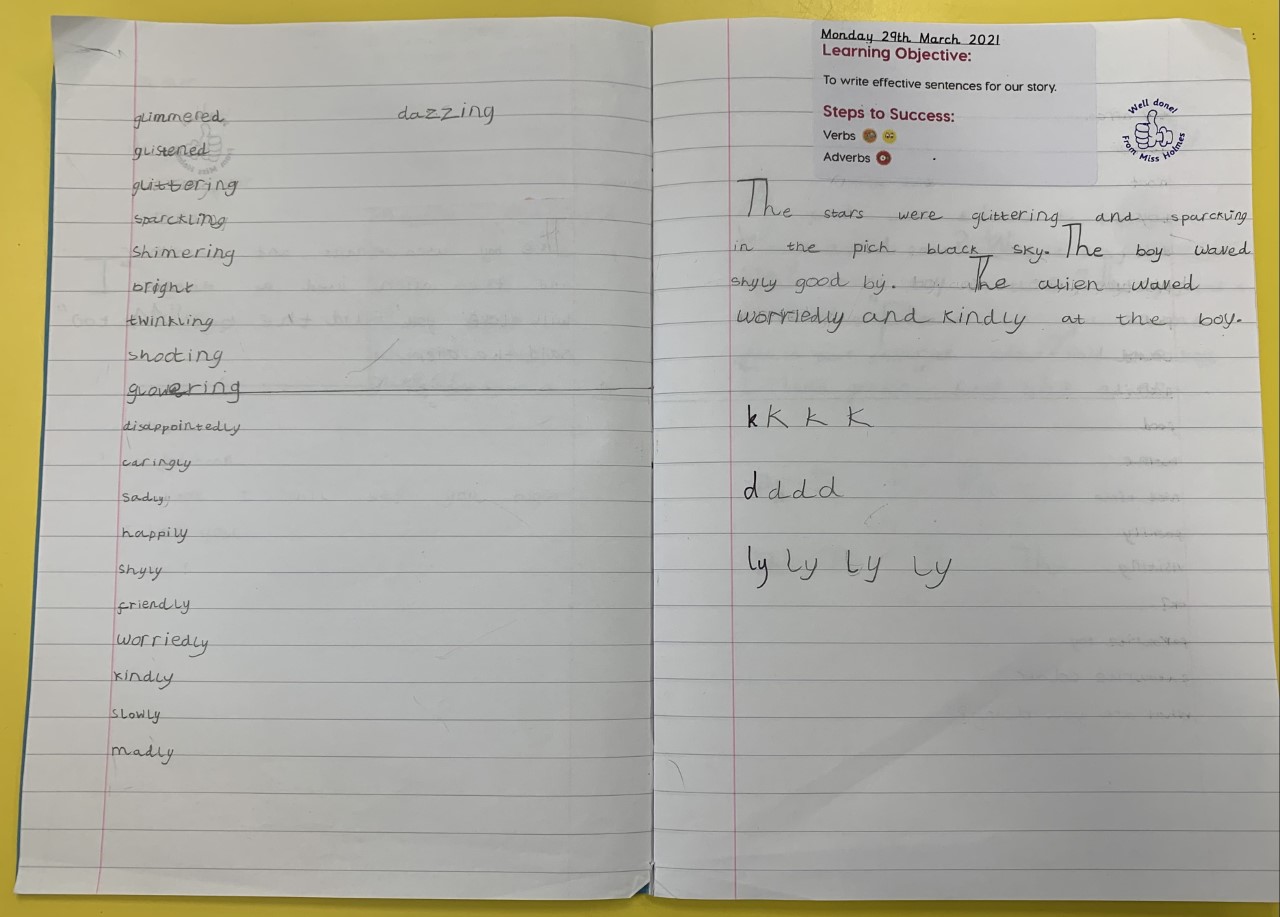 glimmered
dazzing
glistened
glittering
sparckling
shimering
bright
twinkling
shooting
glowering
disappointedly
caringly
sadly
happily
shyly
friendly
worriedly
kindly
slowly
madly
Monday 29th March 2021
Learning Objective:
To write effective sentences for our story.
Steps to Success:
Verbs
Adverbs
Well done!
From Miss Holmes
The stars were glittering and sparckling
in the pich black sky. The boy waved
shyly good by. The alien waved
worriedly and kindly at the boy.
k k k k
d d d d
ly ly ly ly